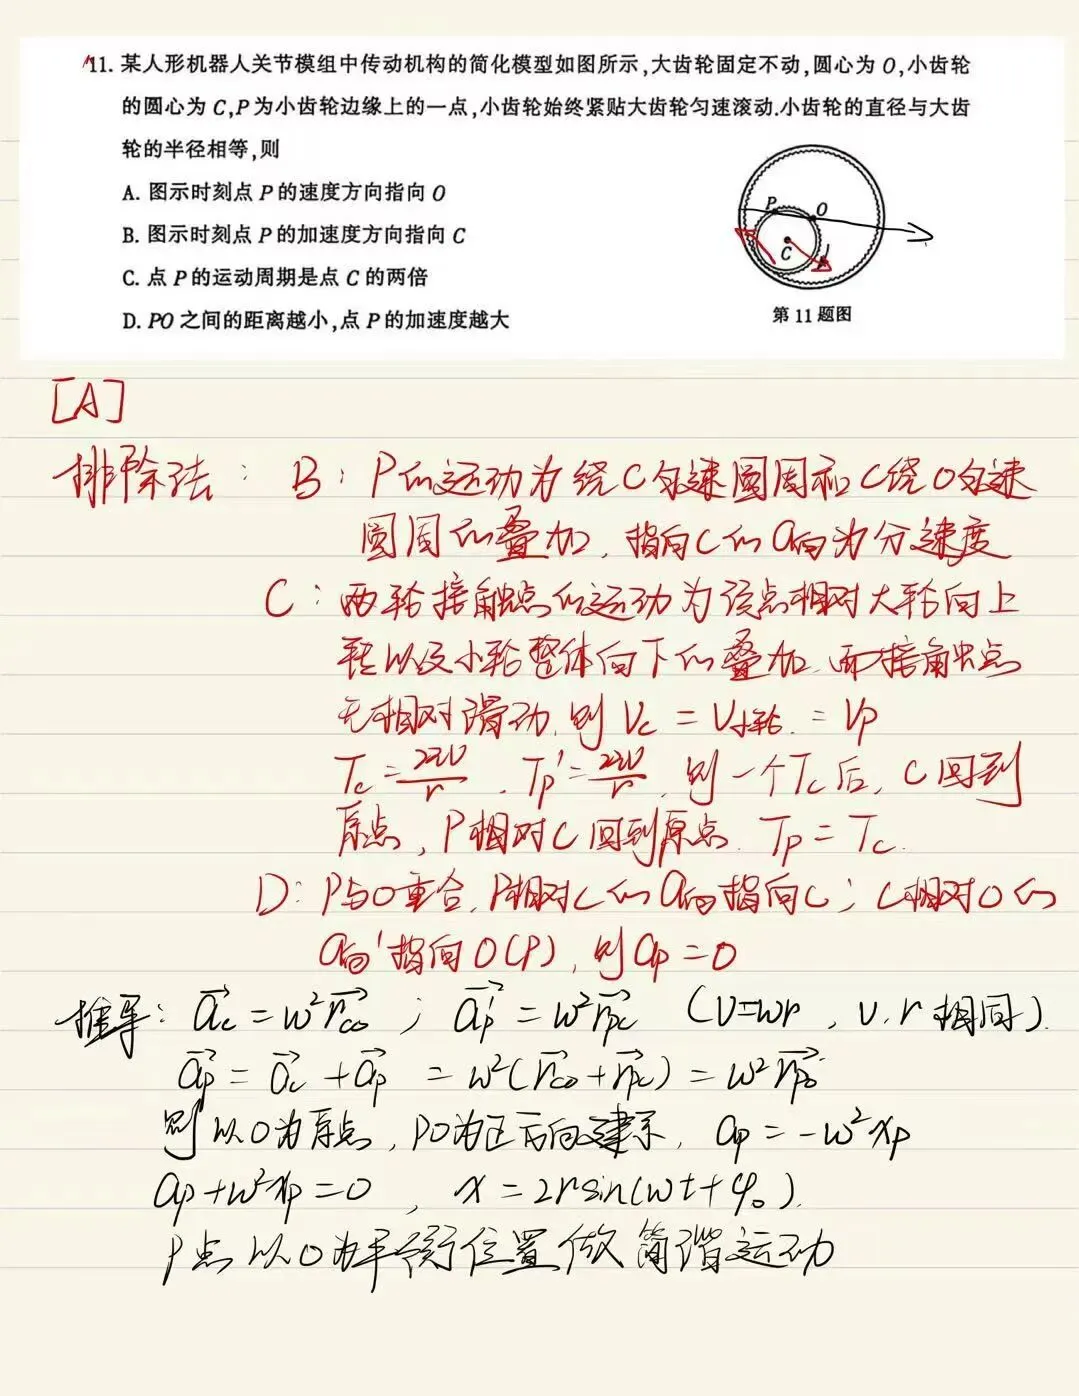 11. 某人形机器人关节模组中传动机构的简化模型如图所示,大齿轮固定不动,圆心为 O,小齿轮
的圆心为 C,P 为小齿轮边缘上的一点,小齿轮始终紧贴大齿轮匀速滚动.小齿轮的直径与大齿
轮的半径相等,则
A. 图示时刻点 P 的速度方向指向 O
B. 图示时刻点 P 的加速度方向指向 C
C. 点 P 的运动周期是点 C 的两倍
D. PO 之间的距离越小,点 P 的加速度越大
P
O
C
第 11 题图
[A]
排除法: B: P的运动为绕C匀速圆周和C绕O匀速
圆周的叠加, 指向C的a向为分速度
C: 两轮接触点的运动为该点相对大轮向上
转以及小轮整体向下的叠加, 而接触点
无相对滑动, 则 Vc = V小轮 = Vp
Tc = 2πv/r , Tp' = 2πv/r , 则一个Tc后, C回到
原点, P相对C回到原点. Tp = Tc.
D: P与O重合, P相对C的a向指向C; C相对O的
a向'指向O(P), 则ap = 0
推导: ac = w²rco ; ap' = w²rpc (V=wr , v、r相同).
ap = ac + ap = w²(rco + rpc) = w²rpo
则以O为原点, PO为正方向建系, ap = -w²xp
ap + w²xp = 0 , x = 2rsin(wt+φ₀).
P点以O为平衡位置做简谐运动